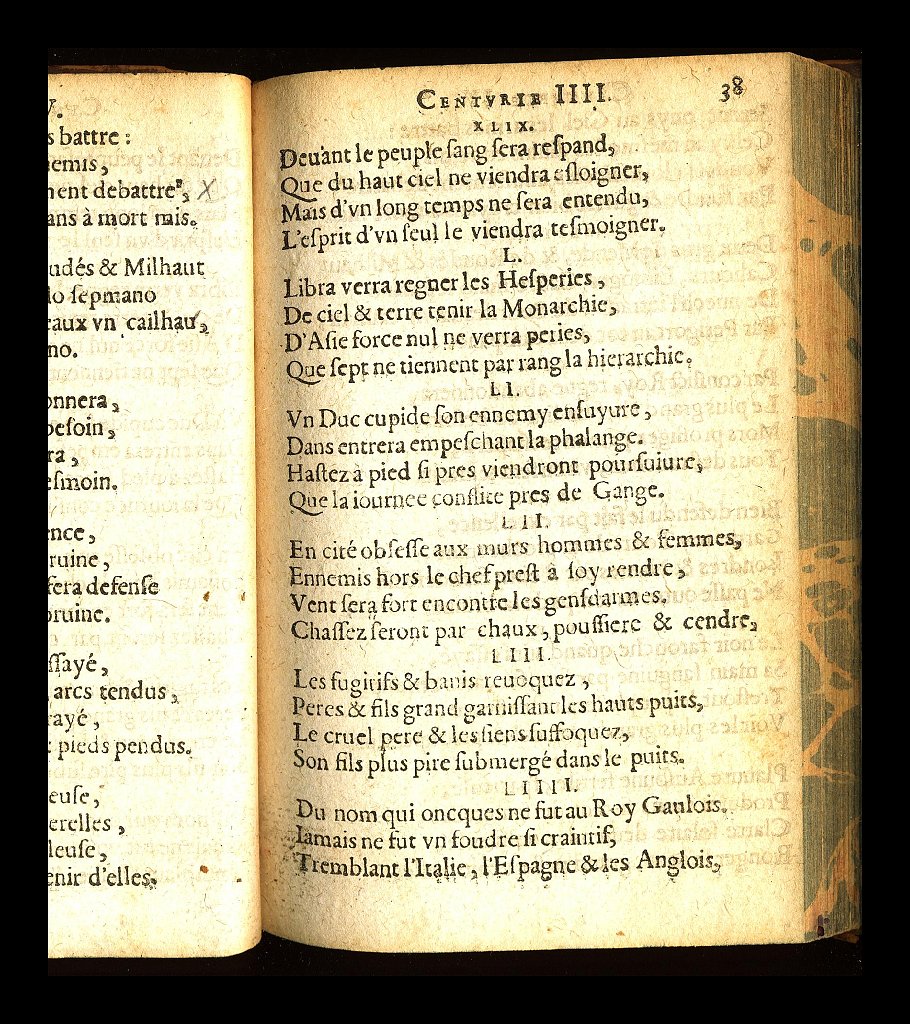 V.
s battre :
emis,
nent debattre, X
ans à mort mis.
udés & Milhaut
lo ſepmano
eaux vn cailhau,
no.
onnera,
beſoin,
ra,
eſmoin.
nce,
ruine,
ſera defenſe
bruine.
ſſayé,
arcs tendus,
rayé,
pieds pendus.
euſe,
erelles,
leuſe,
enir d'elles.
CENTVRIE IIII. 38
XLIX.
Deuant le peuple ſang ſera reſpand,
Que du haut ciel ne viendra eſloigner,
Mais d'vn long temps ne ſera entendu,
L'eſprit d'vn ſeul le viendra teſmoigner.
L.
Libra verra regner les Heſperies,
De ciel & terre tenir la Monarchie,
D'Aſie force nul ne verra peries,
Que ſept ne tiennent par rang la hierarchie.
LI.
Vn Duc cupide ſon ennemy enſuyure,
Dans entrera empeſchant la phalange.
Haſtez à pied ſi pres viendront pourſuiure,
Que la iournee conflite pres de Gange.
LII.
En cité obſeſſe aux murs hommes & femmes,
Ennemis hors le chef preſt à ſoy rendre,
Vent ſera fort encontre les genſdarmes.
Chaſſez ſeront par chaux, pouſſiere & cendre,
LIII.
Les fugitifs & banis reuoquez,
Peres & fils grand garniſſant les hauts puits,
Le cruel pere & les ſiens ſuffoquez,
Son fils plus pire ſubmergé dans le puits.
LIIII.
Du nom qui oncques ne fut au Roy Gaulois.
Iamais ne fut vn foudre ſi craintif,
Tremblant l'Italie, l'Eſpagne & les Anglois,